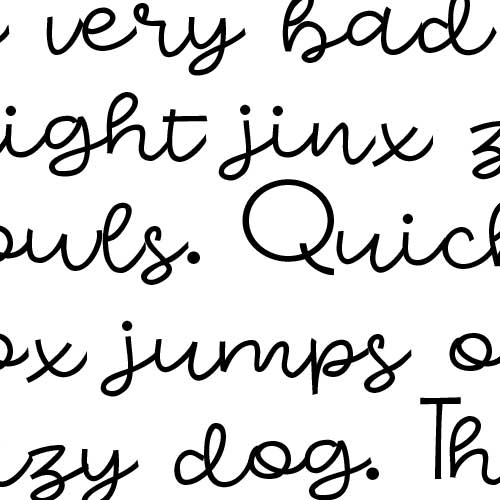 very bad
ight jinx z
owls. Quick
ox jumps o
azy dog. Th